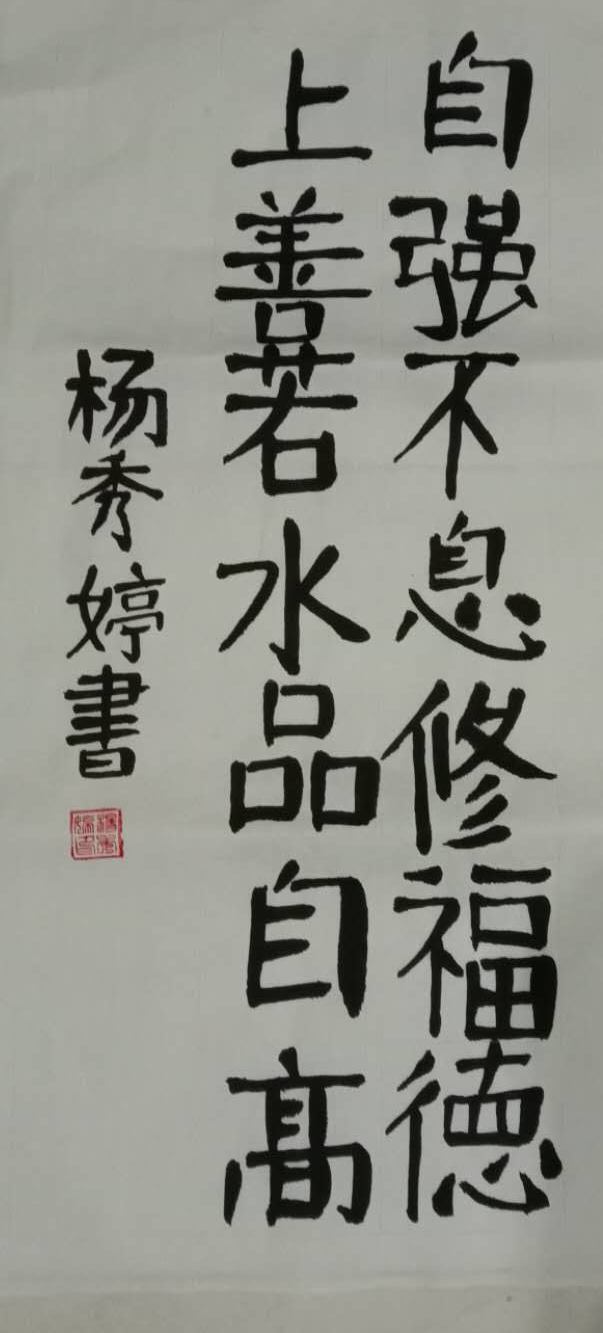 自强不息修福德
上善若水品自高
杨秀婷書